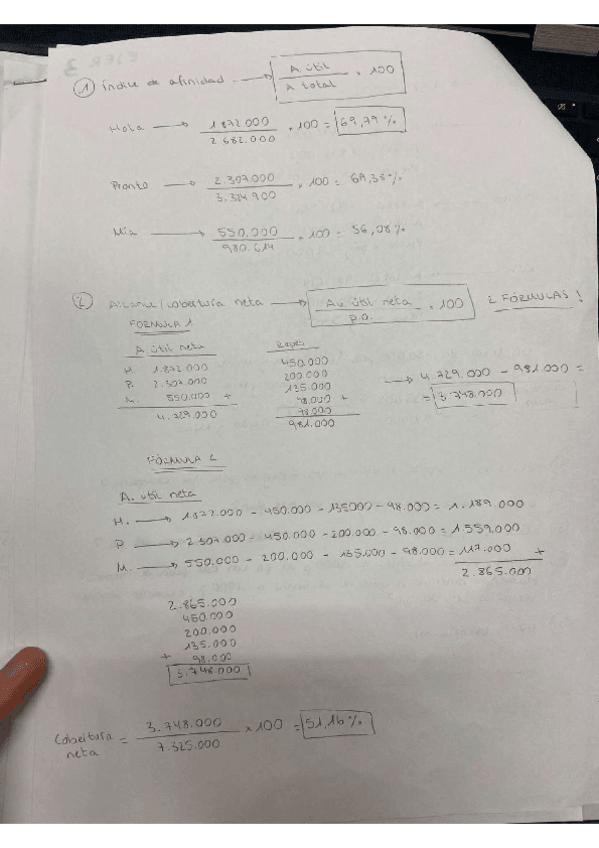 EJER 3
① Índice de afinidad → A útil / A total · 100
Hola → 1.872.000 / 2.682.000 · 100 = 69,79%
Pronto → 2.307.000 / 3.324.900 · 100 = 69,38%
Mía → 550.000 / 980.614 · 100 = 56,08%
② Alcance/cobertura neta → Au. útil neta / p.o. · 100 2 FÓRMULAS!
FÓRMULA 1
A útil neta
H. 1.872.000
P. 2.307.000
M. 550.000 +
4.729.000
450.000
200.000
135.000
98.000 +
98.000
981.000
→ 4.729.000 - 981.000 =
= 3.748.000
FÓRMULA 2
A. útil neta
H. → 1.872.000 - 450.000 - 135000 - 98.000 = 1.189.000
P. → 2.307.000 - 450.000 - 200.000 - 98.000 = 1.559.000
M. → 550.000 - 200.000 - 135.000 - 98.000 = 117.000 +
2.865.000
2.865.000
450.000
200.000
135.000
+ 98.000
3.748.000
Cobertura neta = 3.748.000 / 7.325.000 × 100 = 51,16%